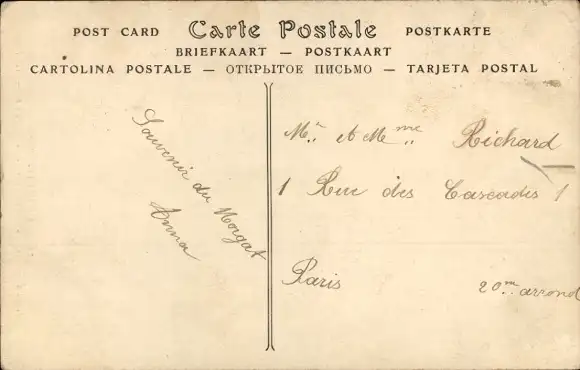 POST CARD Carte Postale POSTKARTE
BRIEFKAART — POSTKAART
CARTOLINA POSTALE — ОТКРЫТОЕ ПИСЬМО — TARJETA POSTAL
Souvenir du Morgat
Anna
Mr. et Mme. Richard
1 Rue des Cascades 1
Paris 20m. arrond